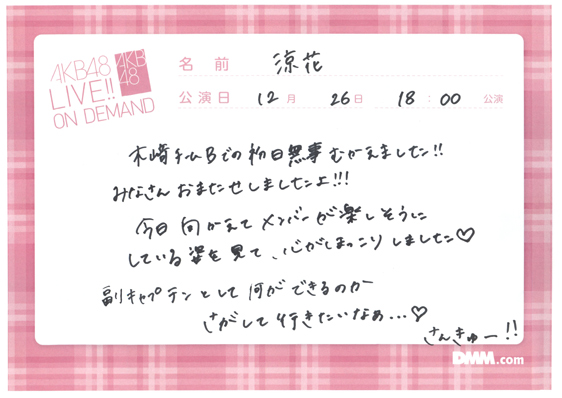 AKB48
LIVE!!
ON DEMAND
AKB
48
名前 涼花
公演日 12月 26日 18:00 公演
木﨑チームBでの初日無事むかえました!!
みなさんおまたせしましたよ!!!
今日向かえてメンバーが楽しそうに
している姿を見て、心がほっこりしました♡
副キャプテンとして何ができるのか
さがして行きたいなぁ...♡
さんきゅー!!
DMM.com